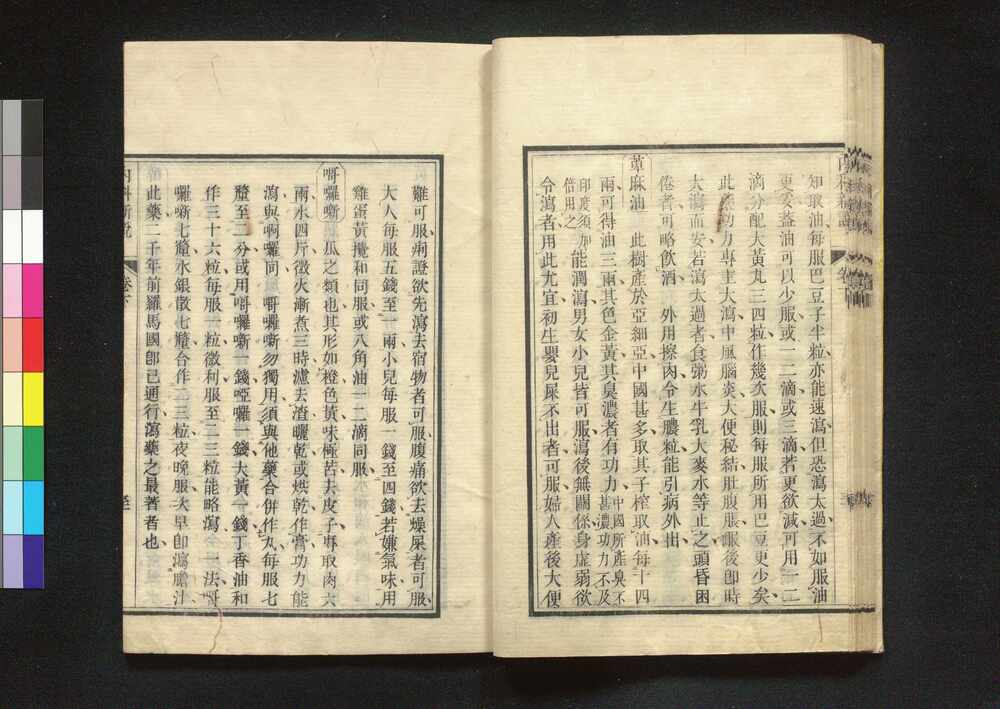 知取油每服巴豆子半粒亦能速瀉但恐瀉太過不如服油
更妥益油可以少服或一二滴或三滴若更欲減可用一二
滴分配大黃丸三四粒作幾次服則每服所用巴豆更少矣
此藥功力專主大瀉中風腦炎大便秘結肚腹脹服後卽時
大瀉而安若瀉太過者食粥水牛乳大麥水等止之頭昏困
倦者可略飲酒 外用擦肉令生膿粒能引病外出
萆麻油 此樹產於亞細亞中國甚多取其子榨取油每十四
兩可得油三兩其色金黃其臭濃者有功力 中國所產臭不甚濃功力不及
印度須加倍用之 能潤瀉男女小兒皆可服瀉後無關係身虛弱欲
令瀉者用此尤宜初生嬰兒屎不出者可服婦人產後大便
難可服痢證欲先瀉去宿物者可服腹痛欲去燥屎者可服
大人每服五錢至一兩小兒每服一錢至四錢若嫌氣味用
雞蛋黃攪和同服或八角油一二滴同服
哥囉噺 瓜之類也其形如橙色黃味極苦去皮子專取肉六
兩水四斤微火漸煮三時濾去渣曬乾或烘乾作膏功力能
瀉與啊囉同 哥囉噺勿獨用須與他藥合併作丸每服七
釐至二分或用哥囉噺一錢啞囉一錢大黃一錢丁香油和
作三十六粒每服一粒微利服至二三粒能略瀉 一法哥
囉噺七釐水銀散七釐合作二三粒夜晚服天早卽瀉膽汁
此藥二千年前羅馬國卽已通行瀉藥之最著者也
內科新說 卷下